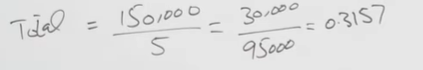 Total = 150,000 / 5 = 30,000 / 95000 = 0.3157